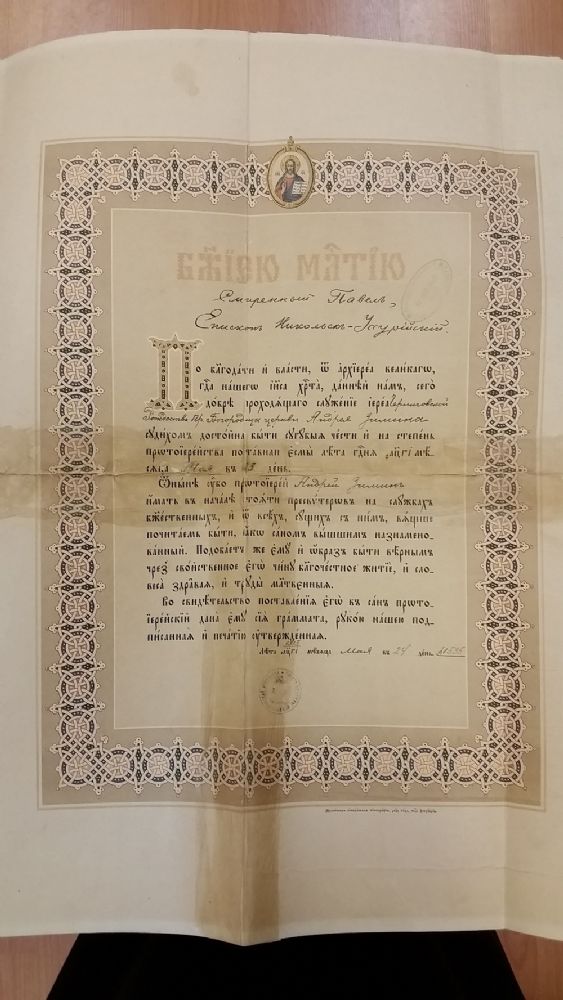 БЖ҃ІЕЮ МЛ҃ТІЮ
Смиренный Павелъ,
Епископъ Никольскъ-Уссурійскій.
По бл҃года́ти и҆ вла́сти, ѿ а҆рхїере́а вели́кагѡ,
гдⷭ҇а на́шегѡ і҆и҃са хрⷭ҇та̀, да́ннѣй на́мъ, сего̀
до́брѣ проходѧ́щаго слꙋже́нїе і҆ере́а
Рождества Пр. Богородицы церкви Андрея Зимина
сꙋди́хомъ досто́йна бы́ти сꙋгꙋ́быѧ че́сти и҆ на сте́пень
прⷪ҇тоїере́йства поста́вили є҆мы̀ лѣ́та гдⷭ҇нѧ мѣ́-
сѧца Мая въ 23 де́нь.
Ѿны́нѣ ᲂу҆́бо прⷪ҇тоїере́й Андрей Зиминъ
и҆́мать въ нача́лѣ тоѧ́ти пресвѵ́терѡвъ на слꙋ́жбахъ
бж҃е́ственныхъ, и҆ ѿ всѣ́хъ, сꙋ́щихъ съ ни́мъ, вѧ́щше
почита́емь бы́ти, ꙗ҆́кѡ са́номъ вы́шшимъ назнамено-
ва́нный. Подоба́етъ же є҆мꙋ̀ и҆ ѡ҆́бразъ бы́ти вѣ̑рнымъ
чрез̾ сво́йственное є҆гѡ̀ чи́нꙋ бл҃гоче́стное житїѐ, и҆ сло-
веса̀ здра̑ваѧ, и҆ трꙋды̀ мл҃твенныѧ.
Во свидѣ́тельство поставле́нїѧ є҆гѡ̀ въ са́нъ прⷪ҇то-
їере́йскїй дана̀ є҆мꙋ̀ сїѧ̀ гра́ммата, рꙋко́ю на́шею под-
пи́санная и҆ печа́тїю ᲂу҆твержде́нная.
Лѣ́та мѣсѧца мая въ 24 де́нь